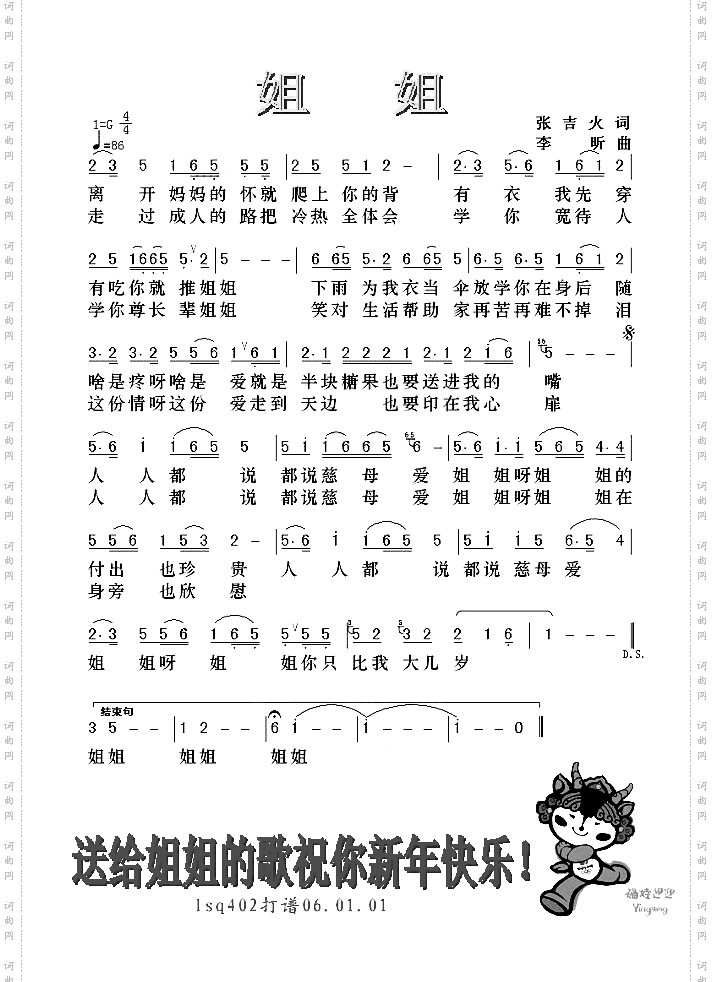 姐 姐
1=G 4/4
♩=86
张吉火词
李昕曲
2 3 5 1 6 5 5 5 | 2 5 5 1 2 - | 2· 3 5· 6 1 6 1 2 |
离 开 妈妈的 怀就 爬上 你的背 有 衣 我先 穿
走 过 成人的 路把 冷热 全体会 学 你 宽待 人
2 5 1665 5· 2 | 5 - - - | 6 6 5 5· 2 6 5 | 6· 5 6· 5 1 6 1 2 |
有吃你就 推姐姐 下雨 为我衣当 伞放学你在身后 随
学你尊长 辈姐姐 笑对 生活帮助 家再苦再难不掉 泪
3· 2 3· 2 5 5 2 5 1 6 1 | 2· 1 2 2 2 1 2· 2 2· 1 2 1 6 | 5 - - |
啥是疼呀啥是 爱就是 半块糖果也要送进我的 嘴
这份情呀这份 爱走到 天边 也要印在我心 扉
5· 6 i i 6 5 5 | 5 i i 6 6 5 6 - | 5· 6 5 6 5 6 2 5 4· 4 |
人 人都 说 都说慈 母 爱 姐 姐呀姐 姐的
人 人都 说 都说慈 母 爱 姐 姐呀姐 姐在
5 5 6 1 5 3 2 - | 5· 6 i i 6 5 5 | 5 i i 5 6· 5 4 |
付出 也珍 贵 人 人都 说都说 慈母爱
身旁 也欣 慰
2· 3 5 5 6 1 6 5 | 5 5 5 5 | 5 2 3 2 2 1 6 | 1 - - ‖
姐 姐呀 姐 姐你只 比我 大几 岁
D.S.
结束句
3 5 - - | 1 2 - - | 6 1 - - | 1 - - - | 1 - - 0 ‖
姐姐 姐姐 姐姐
送给姐姐的歌祝你新年快乐！
lsq402打谱06.01.01
福娃迎迎
Yingying
词曲网